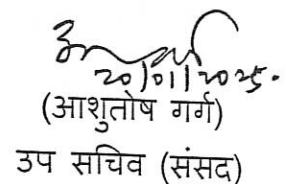 20/01/2025.
(आशुतोष गर्ग)
उप सचिव (संसद)